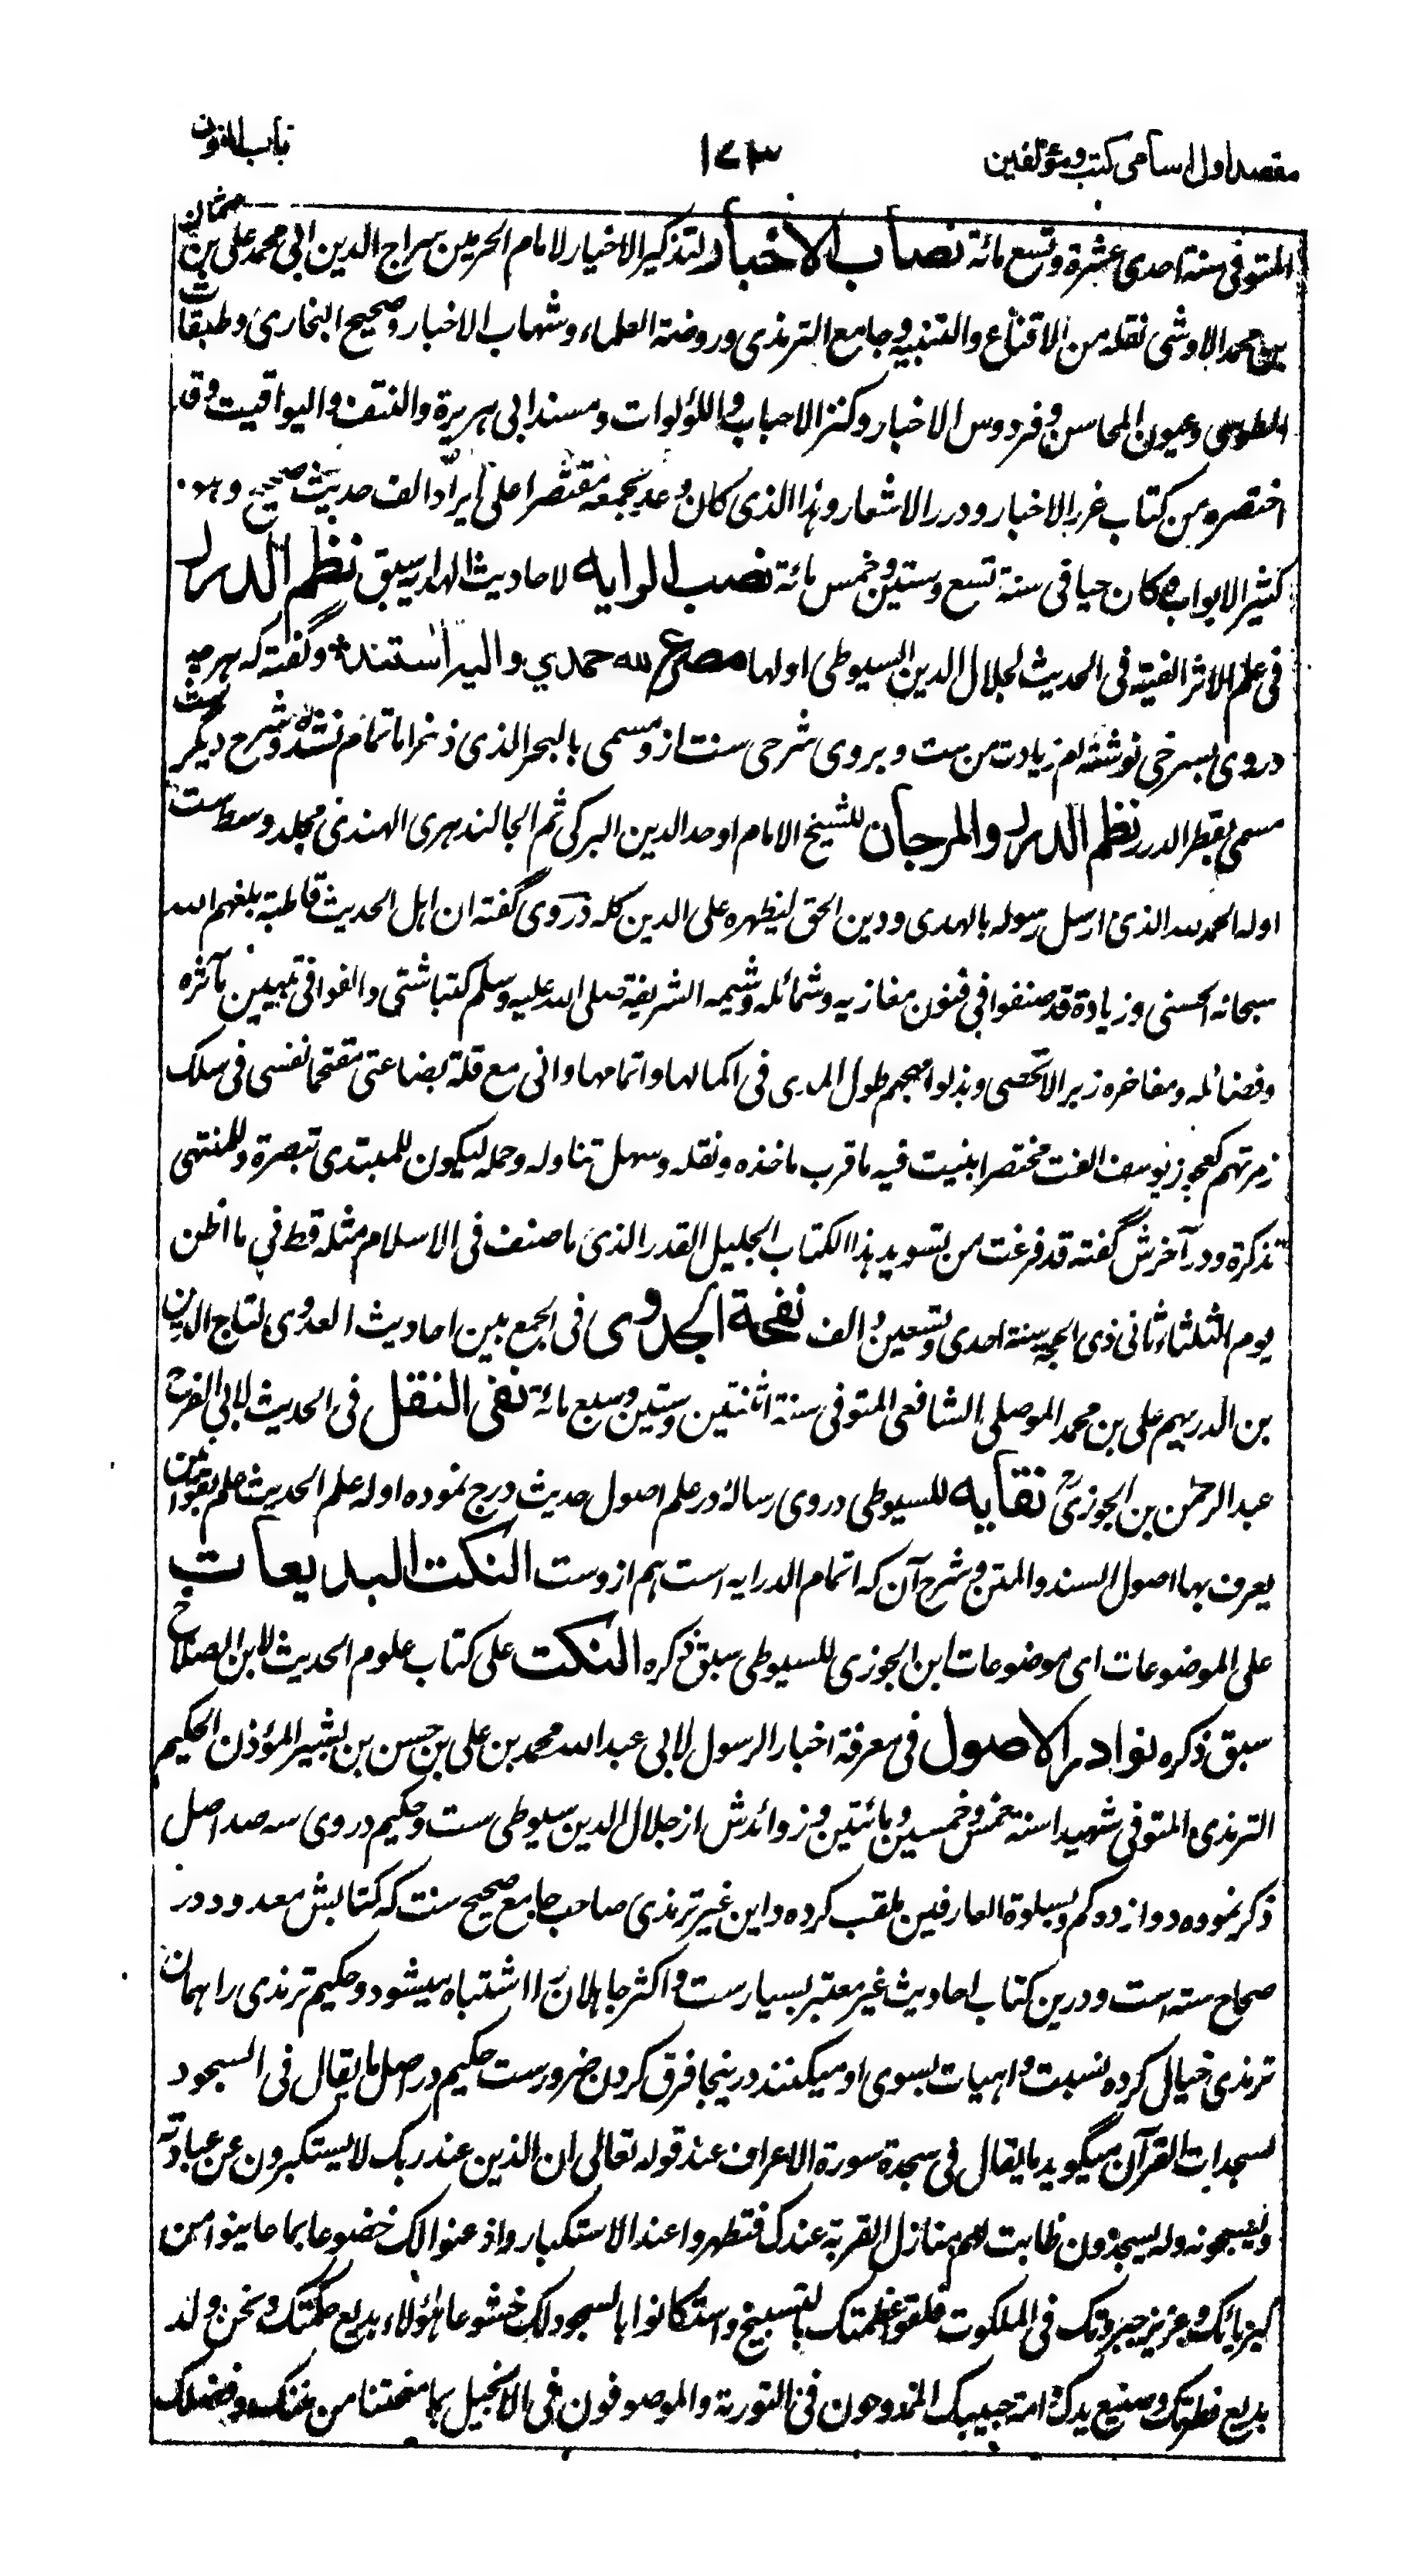 مقصد اول اسامی کتب و مؤلفین
۱۷۳
باب النون
المتوفی سنة احدی عشرة وتسع مائة نصاب الاخبار لتذکیر الاخیار لامام الحرمین سراج الدین ابی محمد علی بن عثمان
بن محمد الاوشی نقله من الاقناع والتنبیه وجامع الترمذی وروضة العلماء وشهاب الاخبار وصحیح البخاری وطبقات
الطوسی وعیون المحاسن وفردوس الاخبار وکنز الاحباب واللؤلؤات ومسند ابی هریرة والنتف والیواقیت وقد
اختصره من کتاب غرر الاخبار ودرر الاشعار وهذا الذی کان وعد بجمعه مقتصرا علی ایراد الف حدیث صحیح وهو
کثیر الابواب وکان حیا فی سنة تسع وستین وخمس مائة نصب الرایه لاحادیث الهدایه سبق نظم الدرر
فی علم الاثر الفیة فی الحدیث لجلال الدین السیوطی اولها مصرع لله حمدي والیه استند* وگفته که هر چه
دروی بسرخی نوشته ام زیادت من ست و بروی شرحی ست از و مسمی بالبحر الذی زخر اما تمام نشده وشرح دیگر ست
مسمی بقطر الدرر نظم الدرر والمرجان للشیخ الامام اوحد الدین البرکی ثم الجالندهری الهندی مجلد وسط ست
اوله الحمد لله الذی ارسل رسوله بالهدی ودین الحق لیظهره علی الدین کله دروی گفته ان اهل الحدیث قاطبة بلغهم الله
سبحانه الحسنی وزیادة قد صنفوا فی فنون مغازیه وشمائله وشیمه الشریفة صلی الله علیه وسلم کتبا شتی والفوا فی تبیین مآثره
وفضائله ومفاخره زبرا لاتحصی وبذلوا مهجهم طول المدی فی اکمالها واتمامها وانی مع قلة بضاعتی مقتحما نفسی فی سلک
زمرتهم کعجوز یوسف الفت مختصرا بنیت فیه ما قرب ماخذه ونقله وسهل تناوله وحمله لیکون للمبتدی تبصرة وللمنتهی
تذکرة ودر آخرش گفته قد فرغت من تسوید هذا الکتاب الجلیل القدر الذی ما صنف فی الاسلام مثله قط فی ما اظن
یوم الثلثاء ثانی ذی الحجه سنة احدی وتسعین والف نفحة الجدوی فی الجمع بین احادیث العدوی لتاج الدین
بن الدریهم علی بن محمد الموصلی الشافعی المتوفی سنة اثنتین وستین وسبع مائة نفی النقل فی الحدیث لابی الفرج
عبدالرحمن بن الجوزی نقایه للسیوطی دروی رساله در علم اصول حدیث درج نموده اوله علم الحدیث علم بقوانین
یعرف بها اصول السند والمتن وشرح آن که اتمام الدرایه است هم از وست النکت البدیعات
علی الموضوعات ای موضوعات ابن الجوزی للسیوطی سبق ذکره النکت علی کتاب علوم الحدیث لابن الصلاح
سبق ذکره نوادر الاصول فی معرفة اخبار الرسول لابی عبدالله محمد بن علی بن حسن بن بشیر المؤذن الحکیم
الترمذی المتوفی شهیدا سنة خمس وخمسین ومائتین وزوائدش از جلال الدین سیوطی ست وحکیم دروی سه صد اصل
ذکر نموده دوازده کم وبسلوة العارفین ملقب کرده واین غیر ترمذی صاحب جامع صحیح ست که کتابش معدود در
صحاح سته است ودرین کتاب احادیث غیر معتبر بسیار ست واکثر جاهلان را اشتباه میشود وحکیم ترمذی را همان
ترمذی خیال کرده نسبت واهیات بسوی او میکنند درینجا فرق کردن ضرور ست حکیم در اصل ما یقال فی السجود
لسجدات القرآن میگوید ما یقال فی سجدة سورة الاعراف عند قوله تعالی ان الذین عند ربک لا یستکبرون عن عبادته
ویسبحونه وله یسجدون طابت لهم منازل القربة عندک فتطهروا عند الاستکبار واذعنوا لک خضوعا بما عاینوا من
کبریائک وعزیز جبروتک فی الملکوت عظمتک بالتسبیح واستکانوا بالسجود لک خشوعا هؤلاء بدیع حکمتک ونحن ولد
بدیع فطرتک وصنیع یدک امة حبیبک الممدوحون فی التورىة والموصوفون فی الانجیل بما منحتنا من منک وفضلک